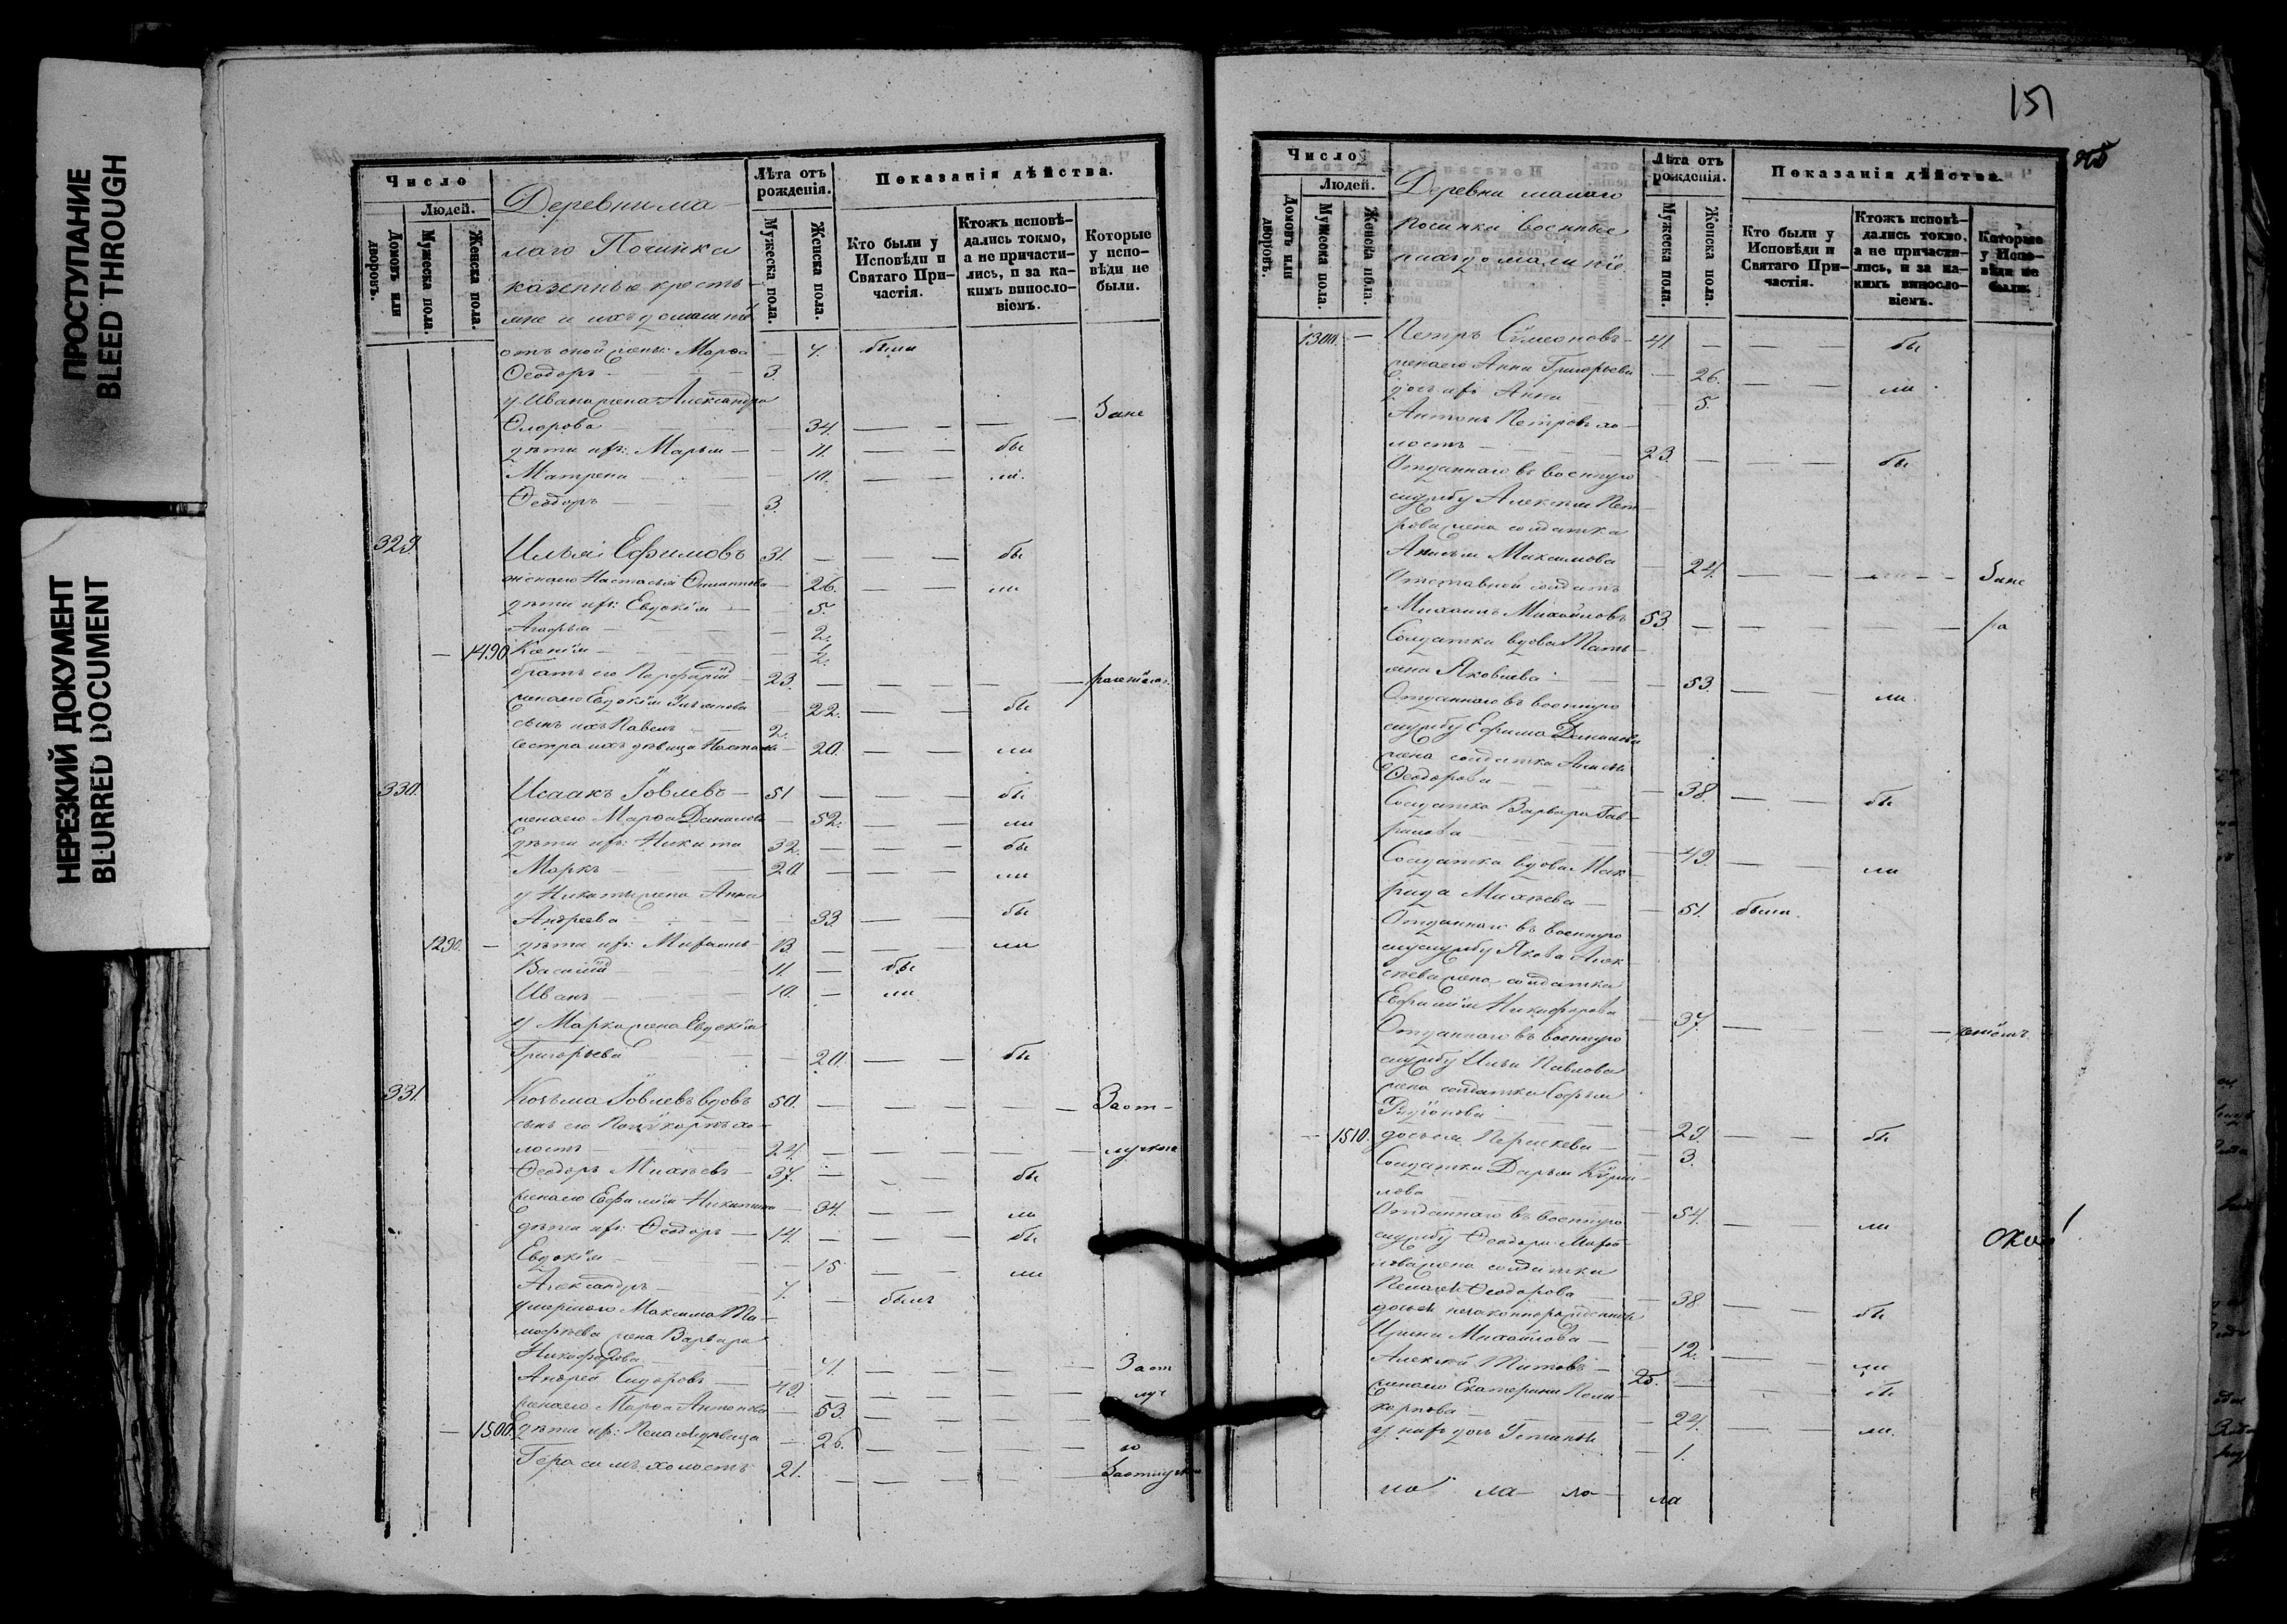 ПРОСТУПАНИЕ
BLEED THROUGH
НЕРЕЗКИЙ ДОКУМЕНТ
BLURRED DOCUMENT
Число
Людей.
Домовъ или дворовъ.
Мужеска пола.
Женска пола.
Деревни ма-
лаго Починка
казенные кресть-
яне и ихъ домашніе
Лѣта отъ рожденія.
Мужеска пола.
Женска пола.
Показанія дѣйства.
Кто были у Исповѣди и Святаго При-частія.
Ктожъ исповѣ-дались токмо, а не причасти-лись, и за ка-кимъ винословіемъ.
Которые у испо-вѣди не были.
отъ оной жены: Марѳа — 7. были
Ѳеодоръ — 3.
у Ивана жена Александра
34. — За не
дѣти ихъ: Марья — 11. — бы
Матрена — 10. — ли.
Ѳеодоръ — 3.
329. Илья Ефимовъ 31. — бы
жена его Настасья 26. — ли
дѣти ихъ: Евдокія — 5.
Агафья — 2.
1490 Ксенія
братъ его Порфирій 23. —
жена его Евдокія 22. — бы
сынъ ихъ Павелъ 2.
сестра ихъ дѣвица Настасья — 20. — ли
330. Исаакъ Іовлевъ — 51 — бы
жена его Марѳа Данилова — 52. — ли
дѣти ихъ: Никита 32. — бы
Маркъ — 20 — ли
у Никиты жена Анна
Андреева — 33. — бы
1290. — дѣти ихъ: Михаилъ — 13 — ли
Василій — 11. — бы
Иванъ — 10. — ли
у Марка жена Евдокія
Григорьева — 20. — бы
331. Козьма Іовлевъ вдовъ 50. — За от-
сынъ его Поликарпъ хо-
лостъ — 24. — лучкою
Ѳеодоръ Михѣевъ — 37. — бы
жена его Евфимія Никитина — 34. — ли
дѣти ихъ: Ѳеодоръ — 14. — бы
Евдокія — 15 — ли
Александръ — 7. — былъ
умершаго Максима Ти-
моѳеева жена Варвара
Никифорова — 71. — За от
Андрей Сидоровъ — 49. — луч
жена его Марѳа Антонова — 53. —
1500. дѣти ихъ: Пелагея дѣвица — 26. — ю
Герасимъ холостъ 21. — За отлучкою
151
Число
Людей.
Домовъ или дворовъ.
Мужеска пола.
Женска пола.
Деревни малаго
Починка военные
и ихъ домашніе.
Лѣта отъ рожденія.
Мужеска пола.
Женска пола.
Показанія дѣйства.
Кто были у Исповѣди и Святаго При-частія.
Ктожъ исповѣ-дались токмо, а не причасти-лись, и за ка-кимъ винословіемъ.
Которые у Испо-вѣди не были.
1300. — Петръ Сѷмеоновъ — 41. — бы
жена его Анна Григорьева — 26. — ли
дочь ихъ Анна — 5.
Антонъ Петровъ хо-
лостъ — 23. — бы
Отданнаго въ военную
службу Алексѣя Пет-
рова жена солдатка
Анисья Максимова — 24. — За не
Отставной солдатъ
Михаилъ Михайловъ 53. — ра
Солдатка вдова Тать-
яна Яковлева — 53. — ли
Отданнаго въ военную
службу Ефима Данилова
жена солдатка Анисья
Ѳеодорова — 38. — бы
Солдатка Варвара Гав-
рилова — 49. — ли
Солдатка вдова Мав-
Михѣева — 51. были.
Отданнаго въ военную
службу Якова Алек-
сѣева жена солдатка
Евфимія Никифорова — 37. —
Отданнаго въ военную
службу Ильи Павлова
жена солдатка Софья
Родіонова — 29. — бы
1510. дочь ея Параскева — 3.
Солдатка Дарья Кѷрил-
лова — 54. — ли
Отданнаго въ военную
службу Ѳеодора Михай-
лова жена солдатка
Пелагея Ѳеодорова — 38. — бы
дочь ея незаконнорожденная
Ирина Михайлова — 12. — ли
Алексѣй Титовъ — 25. — бы
жена его Екатерина Поли-
карпова — 24. — ли.
у нихъ дочь Устинья — 1.